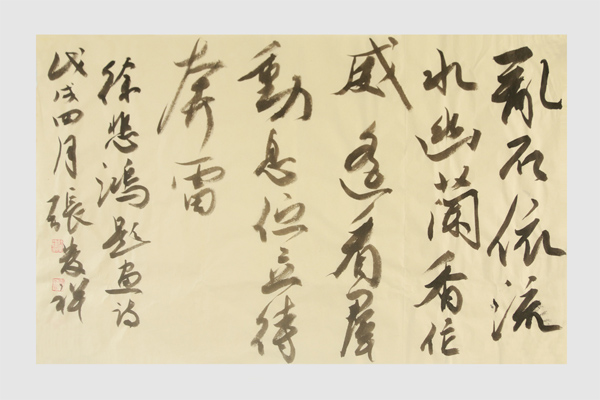 亂石依流
水幽蘭香作
威遙看羣
動息佇立待
奔雷
徐悲鴻題畫詩
戊戌四月張發祥